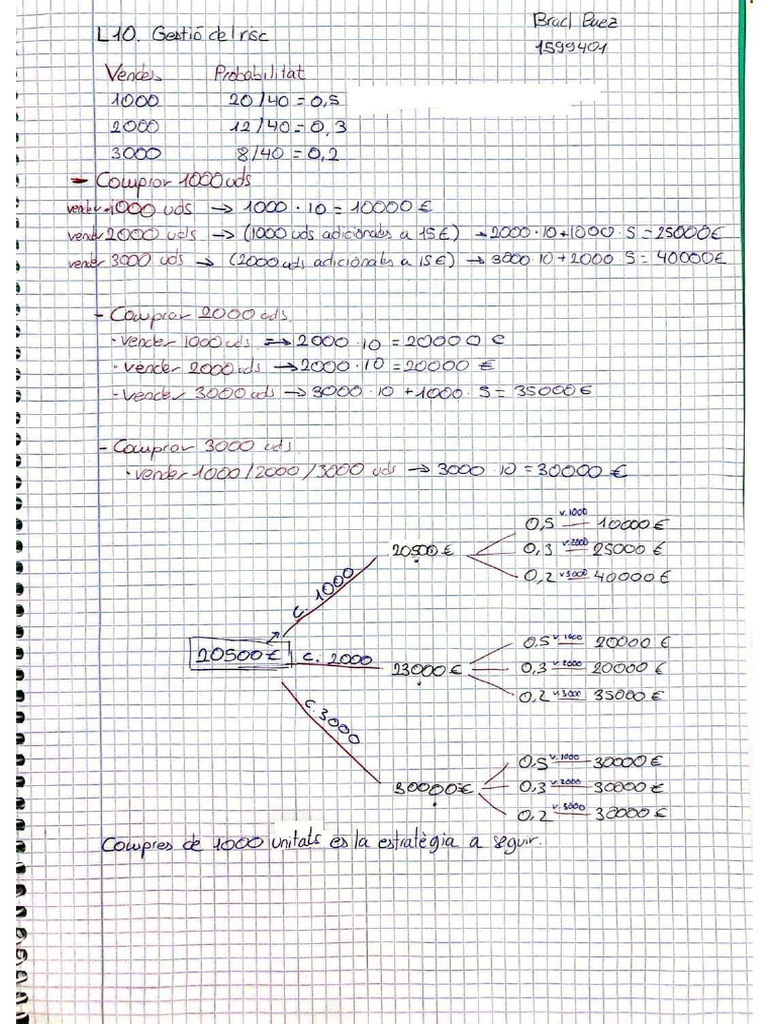 L10. Gestió del risc
Brad Baez
1599401
Vendes Probabilitat
1000 20/40 = 0,5
2000 12/40 = 0,3
3000 8/40 = 0,2
- Comprar 1000 uds
vender 1000 uds → 1000 · 10 = 10000 €
vender 2000 uds → (1000 uds adicionales a 15€) → 2000 · 10 + 1000 · 5 = 25000€
vender 3000 uds → (2000 uds adicionales a 15€) → 3000 · 10 + 2000 · 5 = 40000€
- Comprar 2000 uds.
· vender 1000 uds → 2000 · 10 = 20000 €
· vender 2000 uds → 2000 · 10 = 20000 €
- vender 3000 uds → 3000 · 10 + 1000 · 5 = 35000€
- Comprar 3000 uds.
· vender 1000 / 2000 / 3000 uds → 3000 · 10 = 30000 €
0,5 v.1000 10000 €
c. 1000 20500 € 0,3 v.2000 25000 €
0,2 v.3000 40000 €
0,5 v.1000 20000 €
20500 € c. 2000 23000 € 0,3 v.2000 20000 €
0,2 v.3000 35000 €
0,5 v.1000 30000 €
c. 3000 30000 € 0,3 v.2000 30000 €
0,2 v.3000 30000 €
Compres de 1000 unitats és la estratègia a seguir.